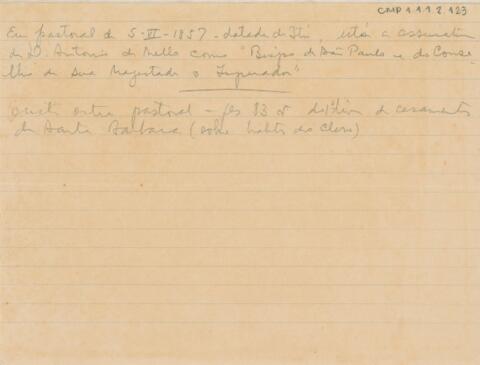 CMP 1.1.1.2.123
Em pastoral de 5-VI-1857 - datada de Itú, está a assinatura
de D. Antonio de Mello como "Bispo de São Paulo e do Conse-
lho de Sua Magestade o Imperador"
outra pastoral - fls 83 v do livro de casamentos
de Santa Barbara (sobre habito do Clero)